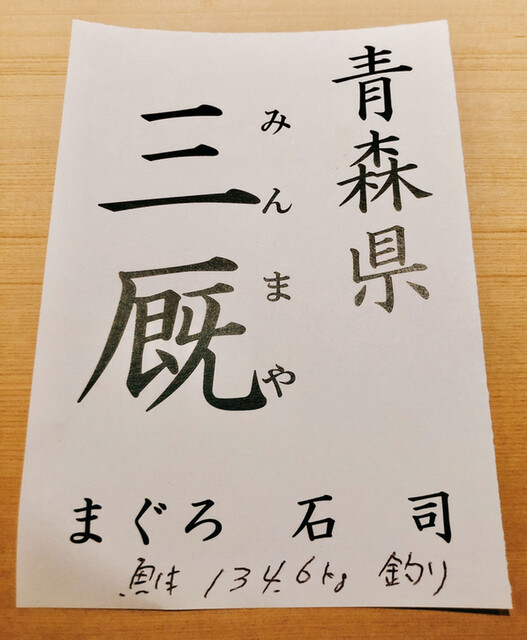 青森県
三厩
みんまや
まぐろ 石司
魚体 134.6kg 釣り